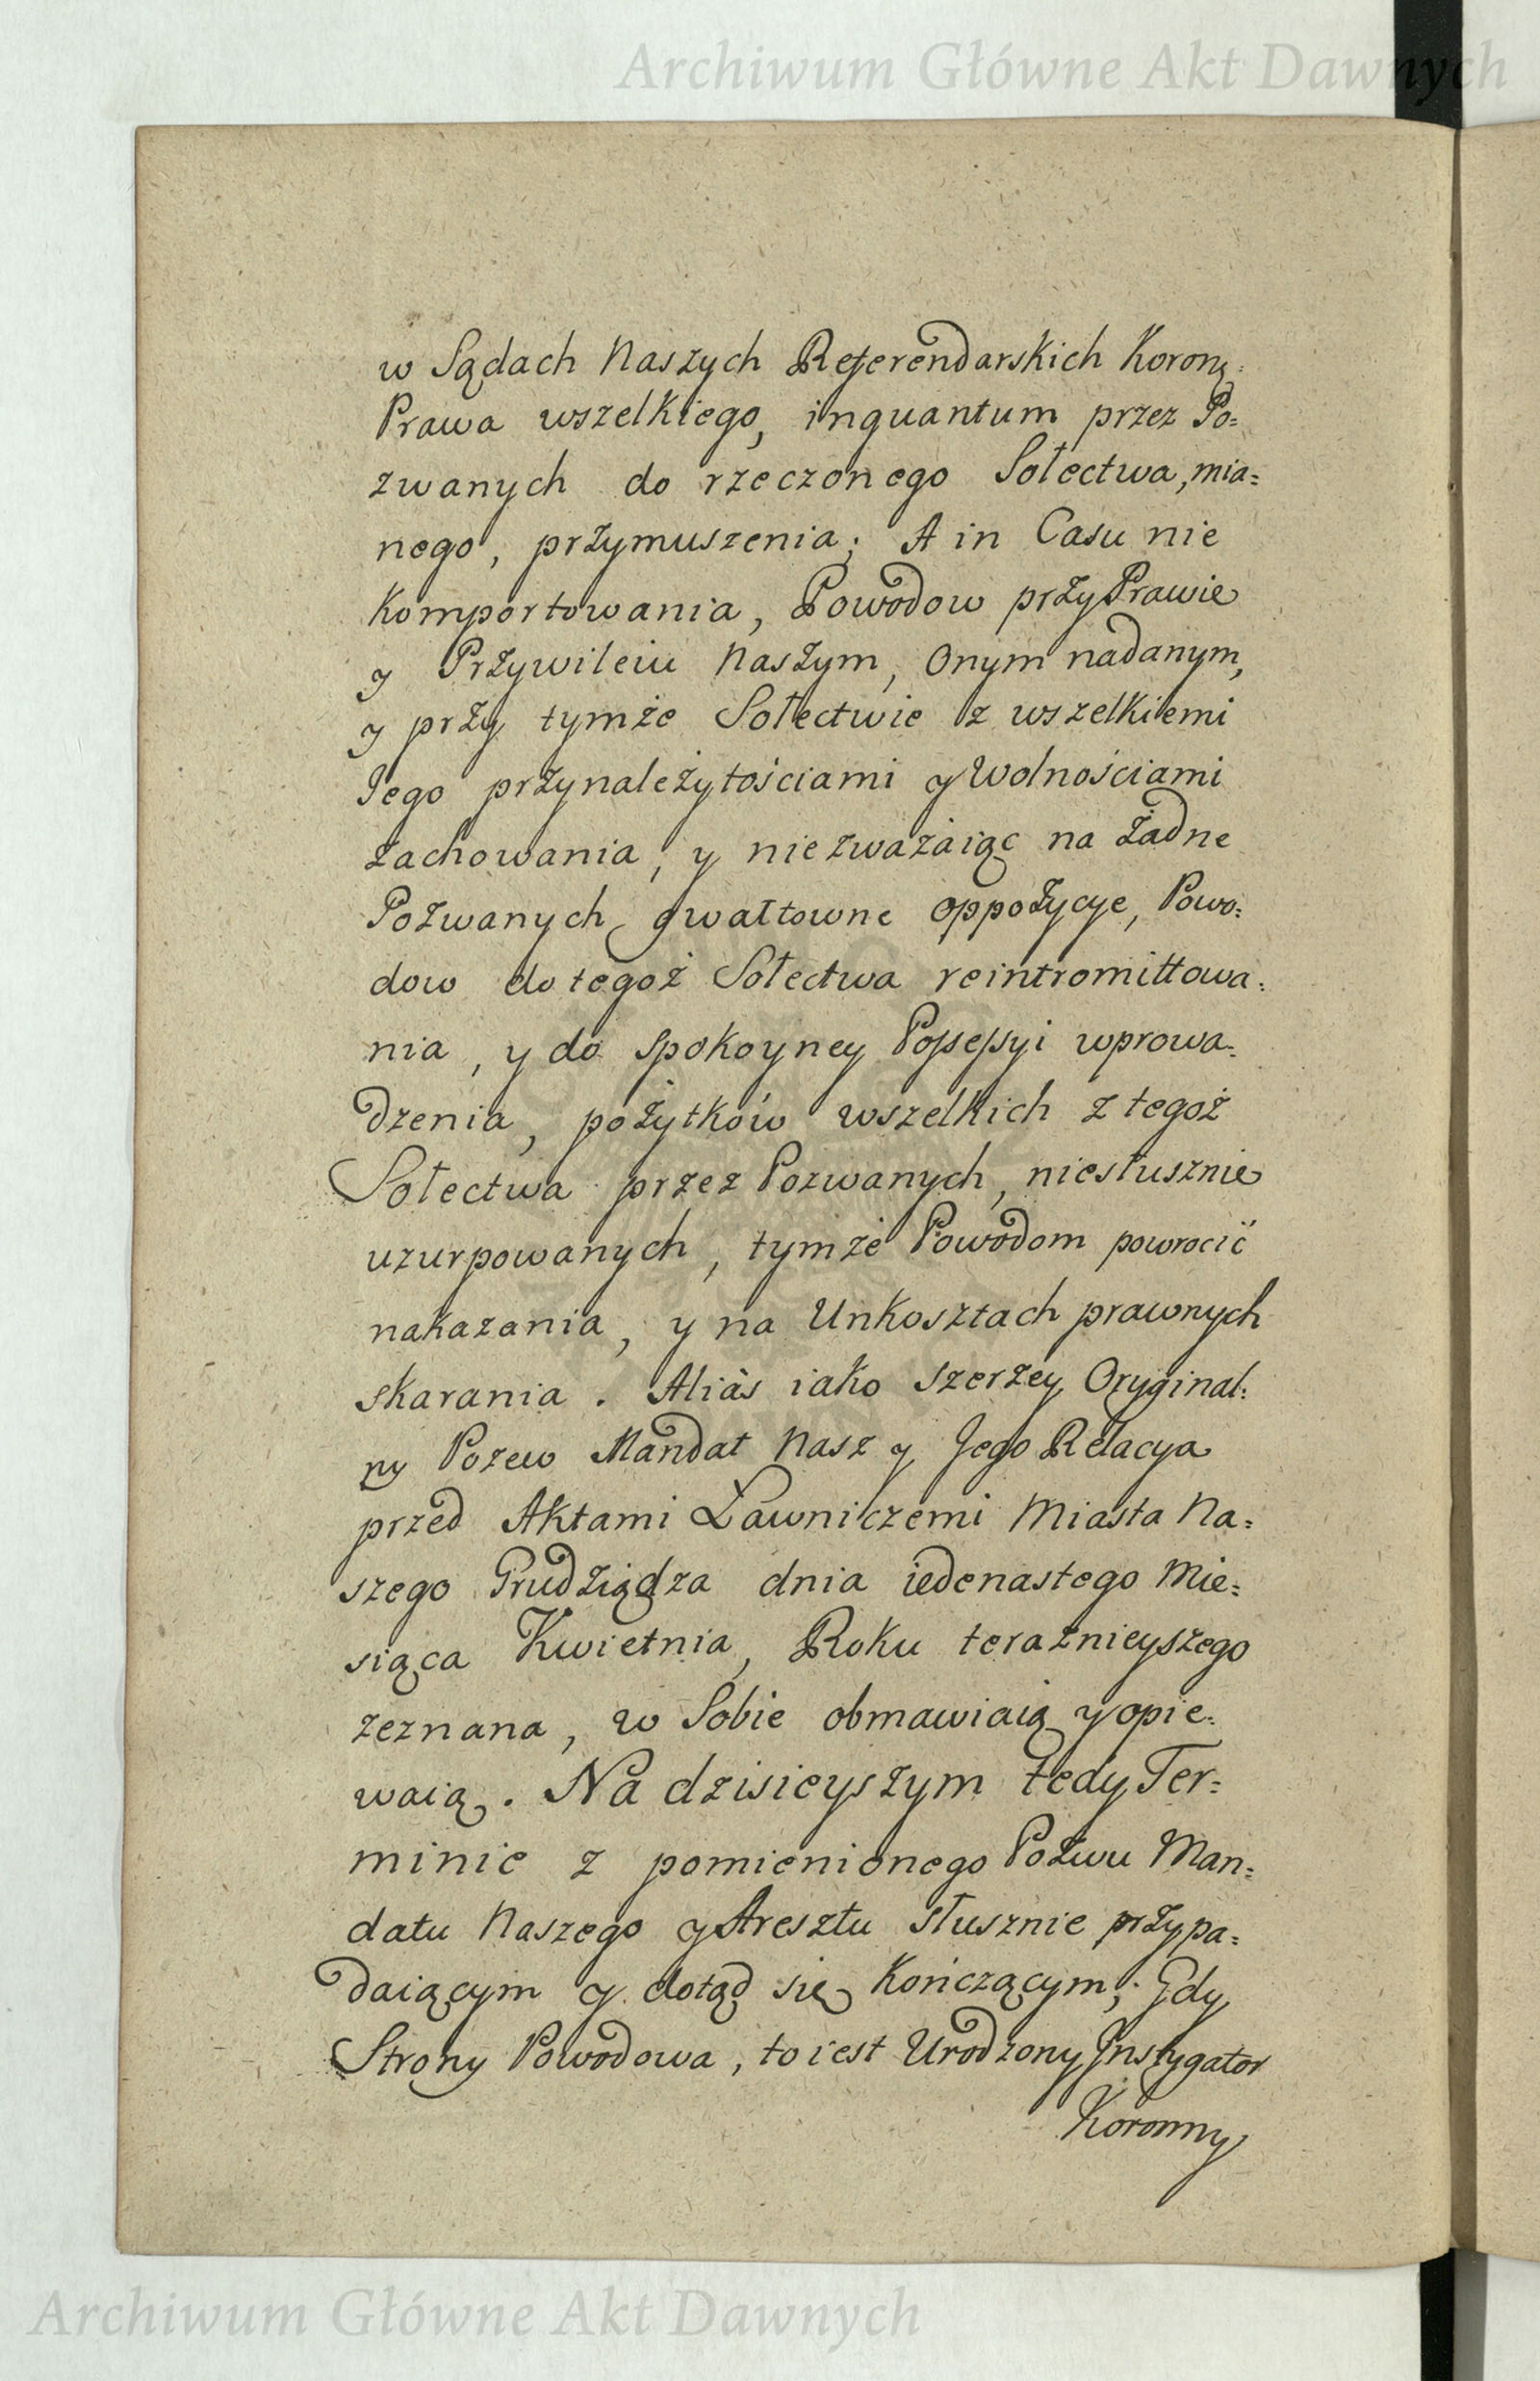 Archiwum Główne Akt Dawnych
w Sądach Naszych Referendarskich Koron:
Prawa wszelkiego, inquantum przez Po=
zwanych do rzeczonego Sołectwa, mia=
nego, przymuszenia; A in Casu nie
komportowania, Powodow przy Prawie
y Przywileiu Naszym, Onym nadanym,
y przy tymże Sołectwie z wszelkiemi
Jego przynależytościami y Wolnościami
zachowania, y niezważaiąc na żadne
Pozwanych gwałtowne oppozycye, Powo=
dow do tegoż Sołectwa reintromittowa=
nia, y do spokoyney Possessyi wprowa=
dzenia, pożytków wszelkich z tegoż
Sołectwa przez Pozwanych, niesłusznie
uzurpowanych, tymże Powodom powrocić
nakazania, y na Unkosztach prawnych
skarania. Aliàs iako szerzey Oryginal=
ny Pozew Mandat Nasz y Jego Relacya
przed Aktami Ławniczemi Miasta Na=
szego Grudziądza dnia iedenastego Mie=
siąca Kwietnia, Roku teraznieyszego
zeznana, w Sobie obmawiaią y opie=
waią. Na dzisieyszym tedy Ter=
minie z pomienionego Pozwu Man=
datu Naszego y Aresztu słusznie przypa=
daiącym y dotąd się kończącym; Gdy
Strony Powodowa, to iest Urodzony Instygator
Koronny
Archiwum Główne Akt Dawnych